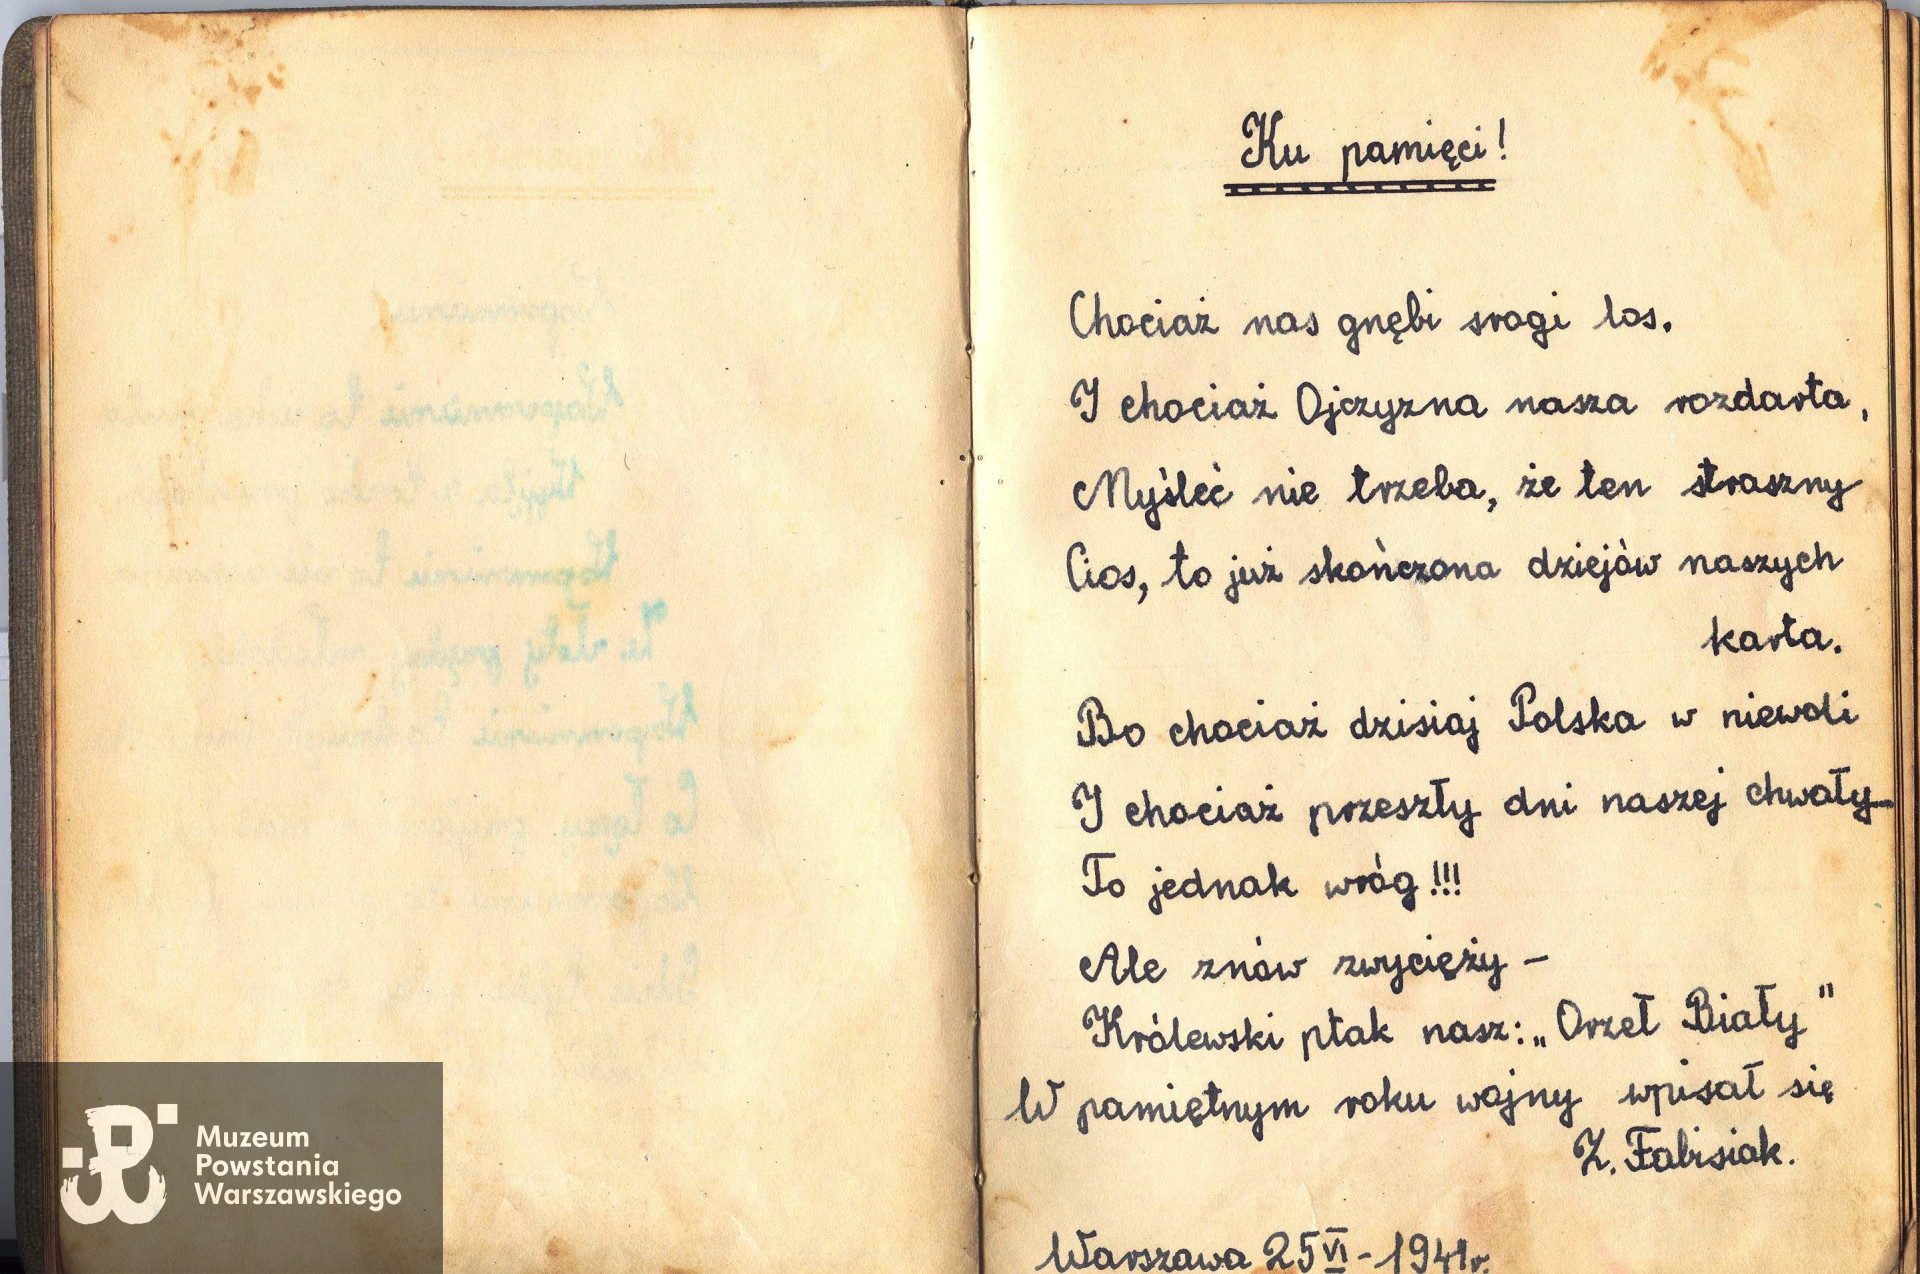 Ku pamięci!
Chociaż nas gnębi srogi los.
I chociaż Ojczyzna nasza rozdarta,
Myśleć nie trzeba, że ten straszny
Cios, to już skończona dziejów naszych
karta.
Bo chociaż dzisiaj Polska w niewoli
I chociaż przeszły dni naszej chwały—
To jednak wróg!!!
Ale znów zwycięży –
Królewski ptak nasz: „Orzeł Biały"
W pamiętnym roku wojny wpisał się
Z. Fabisiak.
Warszawa 25 VI - 1941r.
Muzeum
Powstania
Warszawskiego